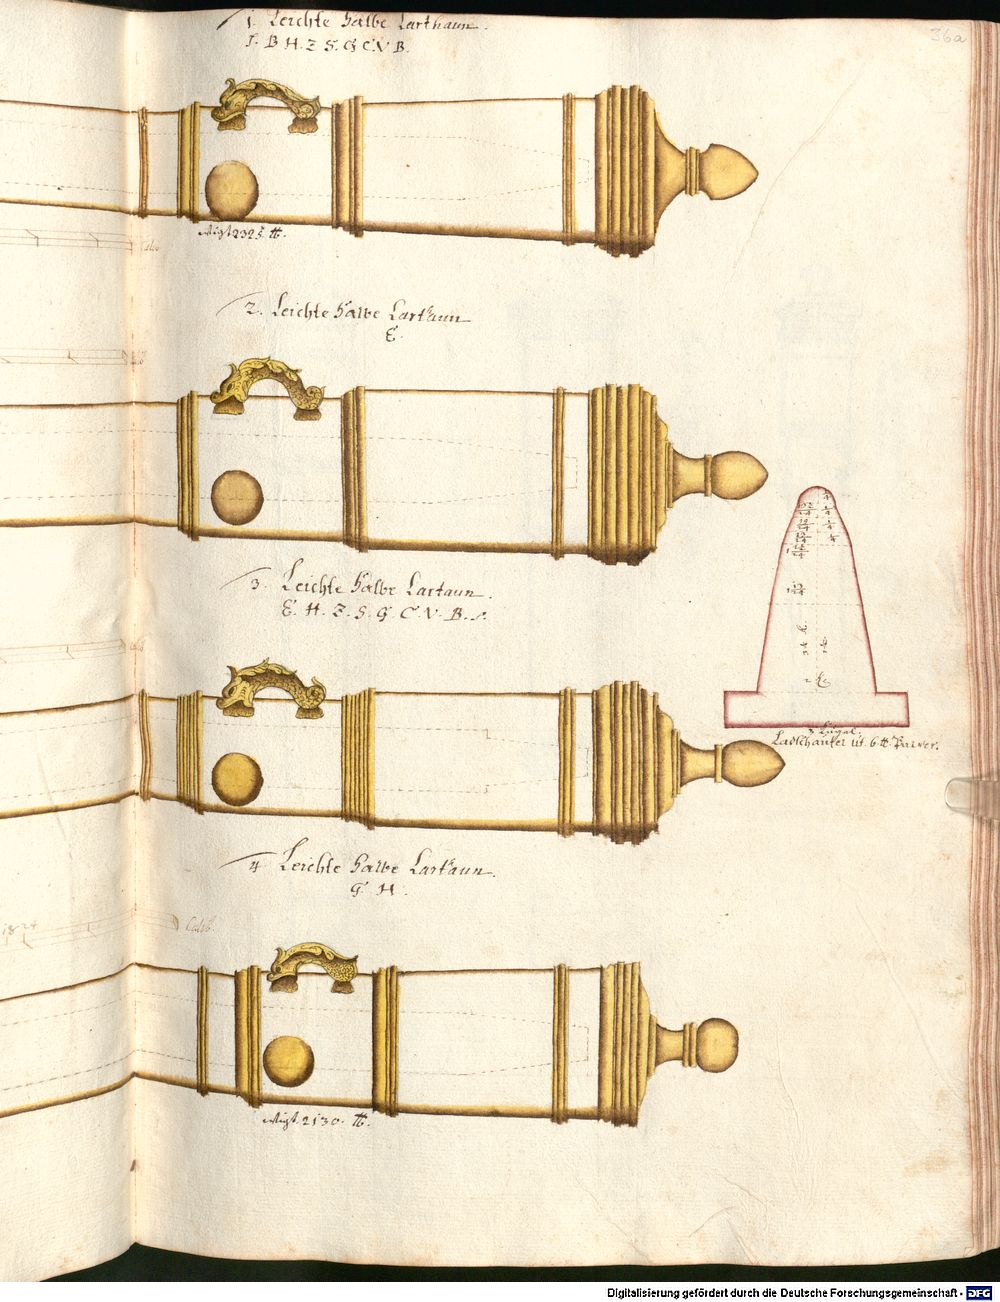 36a
1. Leichte halbe Carthaun.
I. B H. Z S. G C. V B.
Wigt 2325 ℔.
Calib
2. Leichte halbe Cartaun
E.
3. Leichte halbe Cartaun.
E. H. Z. S. G. C. V. B. s.
3 kugel.
Ladschaufel uf. 6 ℔ Pulver.
4 Leichte halbe Cartaun.
G H.
Calib.
Wigt. 2130. ℔.
Digitalisierung gefördert durch die Deutsche Forschungsgemeinschaft - DFG